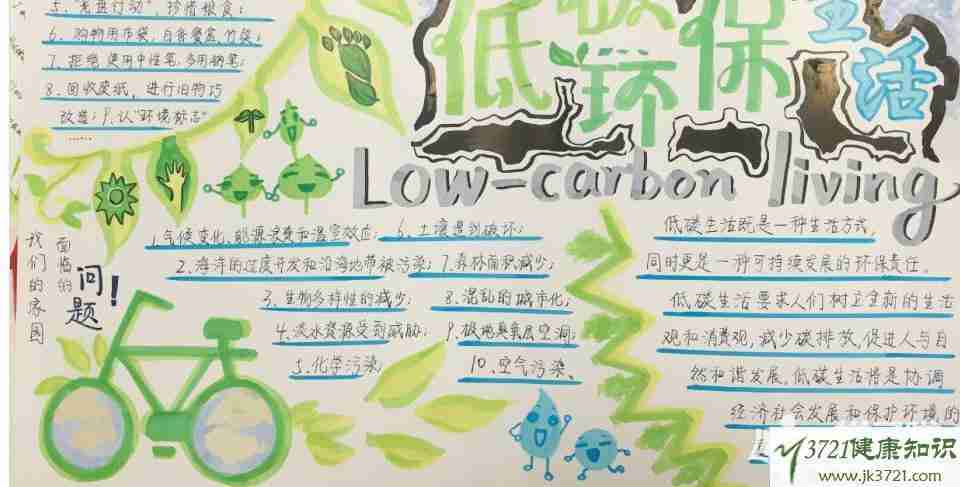 5、"光盘行动"，珍惜粮食；
6、购物用布袋，自备餐盒，竹筷；
7、拒绝使用中性笔，多用钢笔；
8、回收废纸，进行旧物巧
改造；9、认"环境标志"
……
低碳环保
生活
Low-carbon living
我们的家园
面临的
问题！
1.气候变化、能源浪费和温室效应；6、土壤遭到破坏；
2.海洋的过度开发和沿海地带被污染；7.森林面积减少；
3、生物多样性的减少；8、混乱的城市化；
4、淡水资源受到威胁；9、极地臭氧层空洞；
5、化学污染；10、空气污染、
低碳生活既是一种生活方式，
同时更是一种可持续发展的环保责任。
低碳生活要求人们树立全新的生活
观和消费观，减少碳排放，促进人与自
然和谐发展，低碳生活将是协调
经济社会发展和保护环境的
3721健康知识
www.jk3721.com